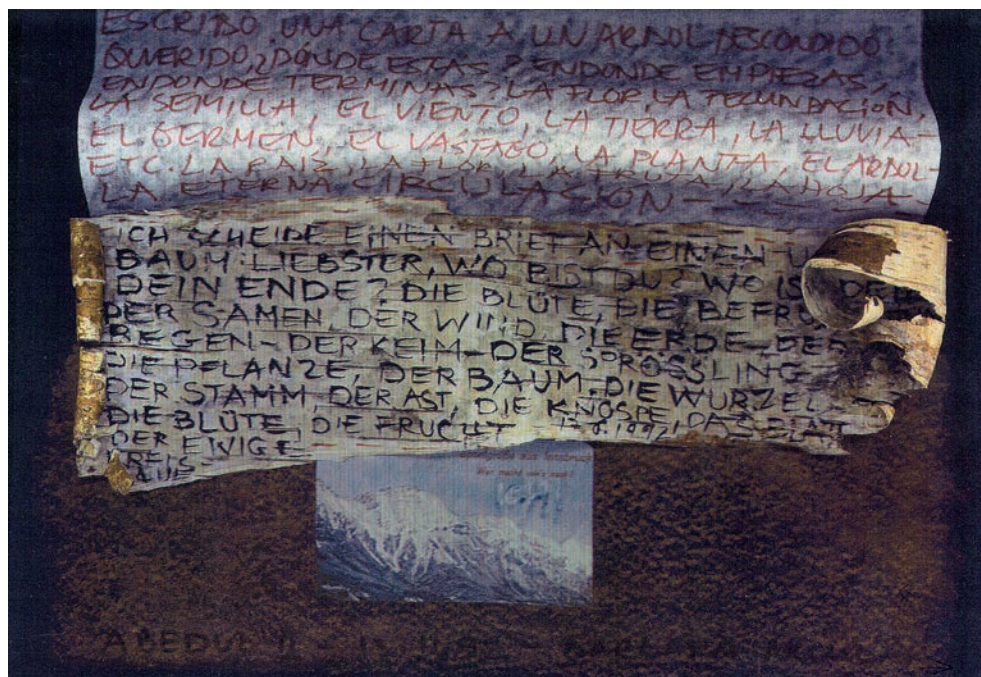 ESCRIBO UNA CARTA A UN ARBOL DESCONOIDO
QUERIDO, ¿DÓNDE ESTAS? ENDONDE EMPIEZAS,
ENDONDE TERMINAS? LA FLOR, LA FECUNDACIÓN,
LA SEMILLA, EL VIENTO, LA TIERRA, LA LLUVIA-
EL GERMEN, EL VÁSTAGO, LA PLANTA, EL ARBOL-
ETC. LA RAIZ, LA FLOR, LA FRUTA, LA HOJA-
LA ETERNA CIRCULASION
ICH SCHEIDE EINEN BRIEF AN EINEN
BAUM: LIEBSTER, WO BIST DU? WO IST
DEIN ENDE? DIE BLÜTE, DIE
DER SAMEN, DER WIND, DIE ERDE-DER
REGEN-DER KEIM-DER SPRÖSSLING
DIE PFLANZE, DER BAUM-DIE WURZEL
DER STAMM, DER AST, DIE KNOSPE, DAS BLATT
DIE BLÜTE, DIE FRUCHT
DER EWIGE
KREIS
ABEDUL